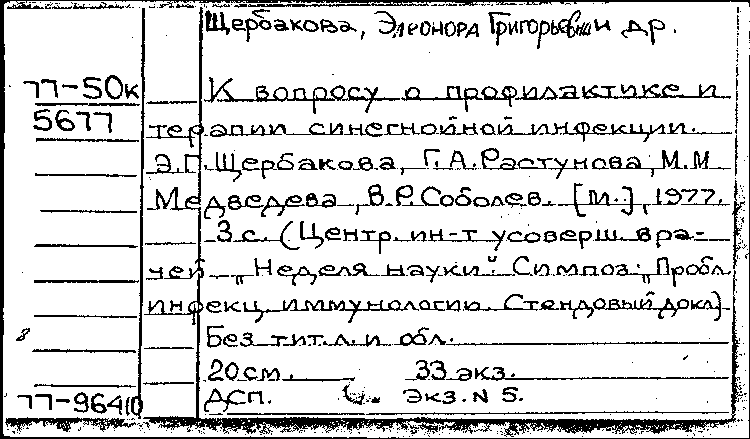 Щербакова, Элеонора Григорьевна и др.
77-50к
К вопросу о профилактике и
5677
терапии синегнойной инфекции.
Э.Г. Щербакова, Г.А. Растунова, М.М
Медведева, В.Р. Соболев. [М.], 1977.
3 с. (Центр. ин-т усоверш. вра-
чей „Неделя науки". Симпоз. „Пробл.
инфекц. иммунологии. Стендовый докл.)
Без тит. л. и обл.
8
20 см. 33 экз.
77-96410 ДСП. Экз. N 5.